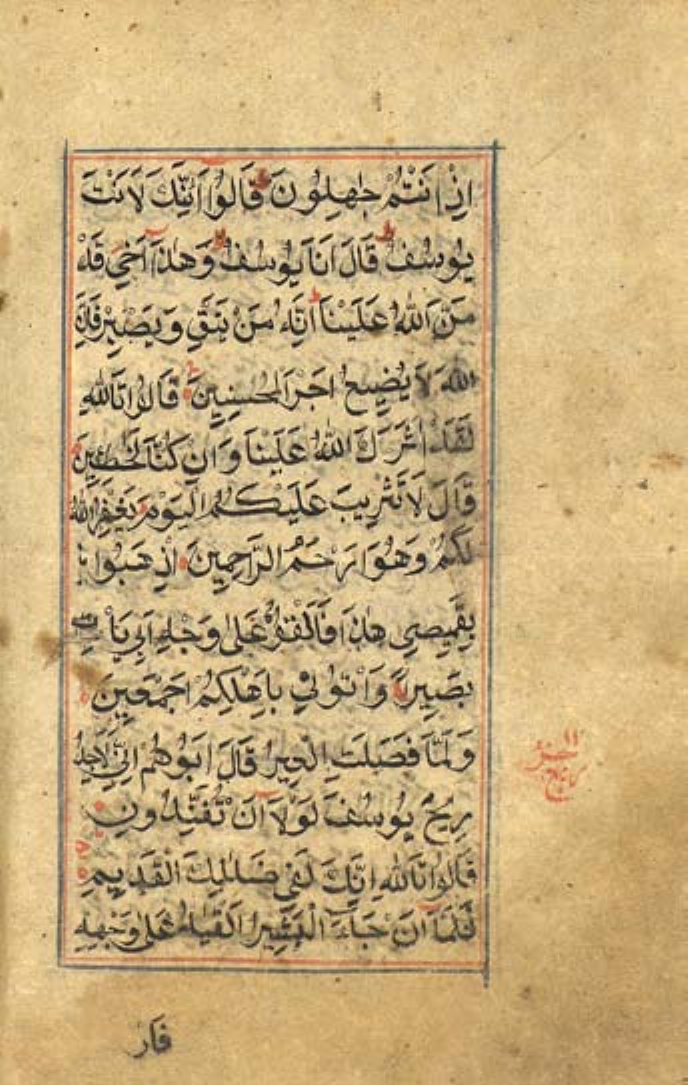 اِذْ اَنْتُمْ جٰهِلُوْنَ قَالُوْا اَئِنَّكَ لَاَنْتَ
يُوْسُفُ قَالَ اَنَا يُوْسُفُ وَهٰذَا اَخِىْ قَدْ
مَنَّ اللّٰهُ عَلَيْنَا اِنَّهُ مَنْ يَتَّقِ وَيَصْبِرْ فَاِنَّ
اللّٰهَ لَا يُضِيْعُ اَجْرَ الْمُحْسِنِيْنَ قَالُوْا تَاللّٰهِ
لَقَدْ اٰثَرَكَ اللّٰهُ عَلَيْنَا وَاِنْ كُنَّا لَخٰطِئِيْنَ
قَالَ لَا تَثْرِيْبَ عَلَيْكُمُ الْيَوْمَ يَغْفِرُ اللّٰهُ
لَكُمْ وَهُوَ اَرْحَمُ الرَّاحِمِيْنَ اِذْهَبُوْا
بِقَمِيْصِىْ هٰذَا فَاَلْقُوْهُ عَلٰى وَجْهِ اَبِىْ يَاْتِ
بَصِيْرًا وَاْتُوْنِىْ بِاَهْلِكُمْ اَجْمَعِيْنَ
وَلَمَّا فَصَلَتِ الْعِيْرُ قَالَ اَبُوْهُمْ اِنِّىْ لَاَجِدُ
رِيْحَ يُوْسُفَ لَوْلَا اَنْ تُفَنِّدُوْنِ
قَالُوْا تَاللّٰهِ اِنَّكَ لَفِىْ ضَلٰلِكَ الْقَدِيْمِ
فَلَمَّا اَنْ جَاءَ الْبَشِيْرُ اَلْقٰهُ عَلٰى وَجْهِهِ
فار